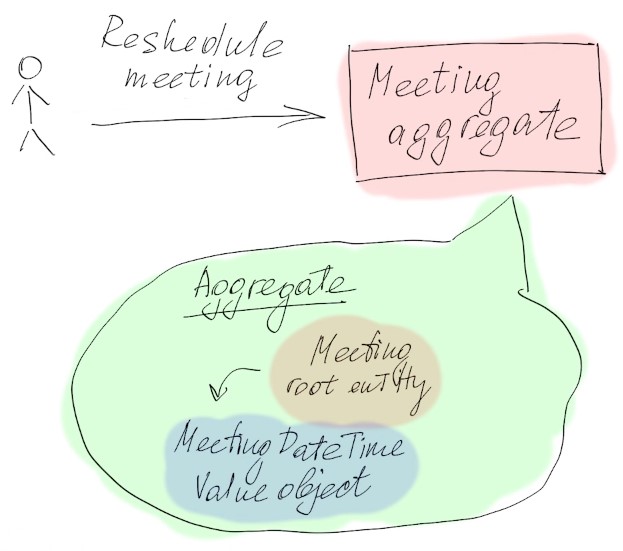 Reshedule
meeting
Meeting
aggregate
Aggregate
Meeting
root entity
Meeting DateTime
Value object